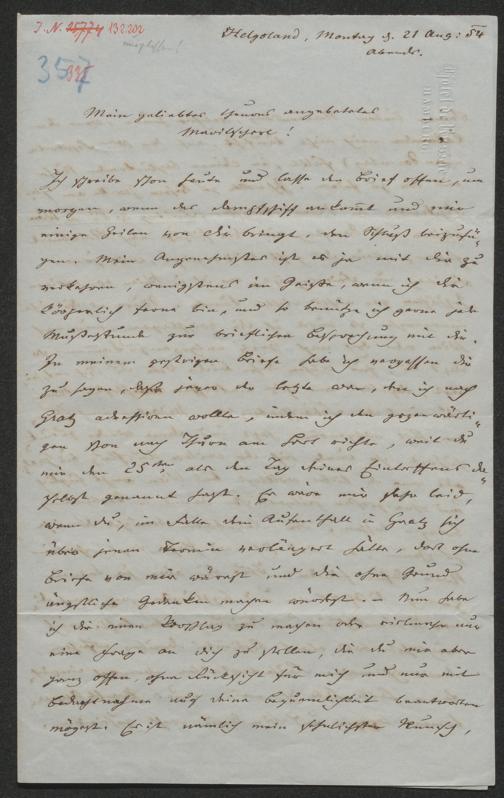 I. N. 15774 132.202
Helgoland, Montag d. 21 Aug: 54
Abends.
357
Mein geliebtes theures angebetetes
Ich schreibe schon heute und lasse den Brief offen, um
morgen, wenn das Dampfschiff ankommt und mir
einige Zeilen von dir bringt, den Schluß beizufü-
gen. Mein Angenehmstes ist es ja mit dir zu
verkehren, wenigstens im Geiste, wenn ich dir
körperlich ferne bin, und so benütze ich gerne jede
Mußestunde zur brieflichen Besprechung mit dir.
In meinem gestrigen Briefe habe ich vergessen dir
zu sagen, daß jener der letzte war, den ich nach
Gratz adressiren wollte, indem ich den gegenwärti-
gen schon nach Thurn am Hart richte, weil du
mir den 25ten als den Tag deines Eintreffens da-
selbst genannt hast. Es wäre mir sehr leid,
wenn du, im Falle dein Aufenthalt in Gratz sich
über jenen Termin verlängert hätte, dort ohne
Briefe von mir wärest und dir ohne Grund
ängstliche Gedanken machen würdest. – Nun habe
ich dir einen Vorschlag zu machen oder vielmehr nur
eine Frage an dich zu stellen, die du mir aber
ganz offen, ohne Rücksicht für mich und nur mit
Bedachtnahme auf deine Bequemlichkeit beantworten
mögest. Es ist nämlich mein sehnlichster Wunsch,